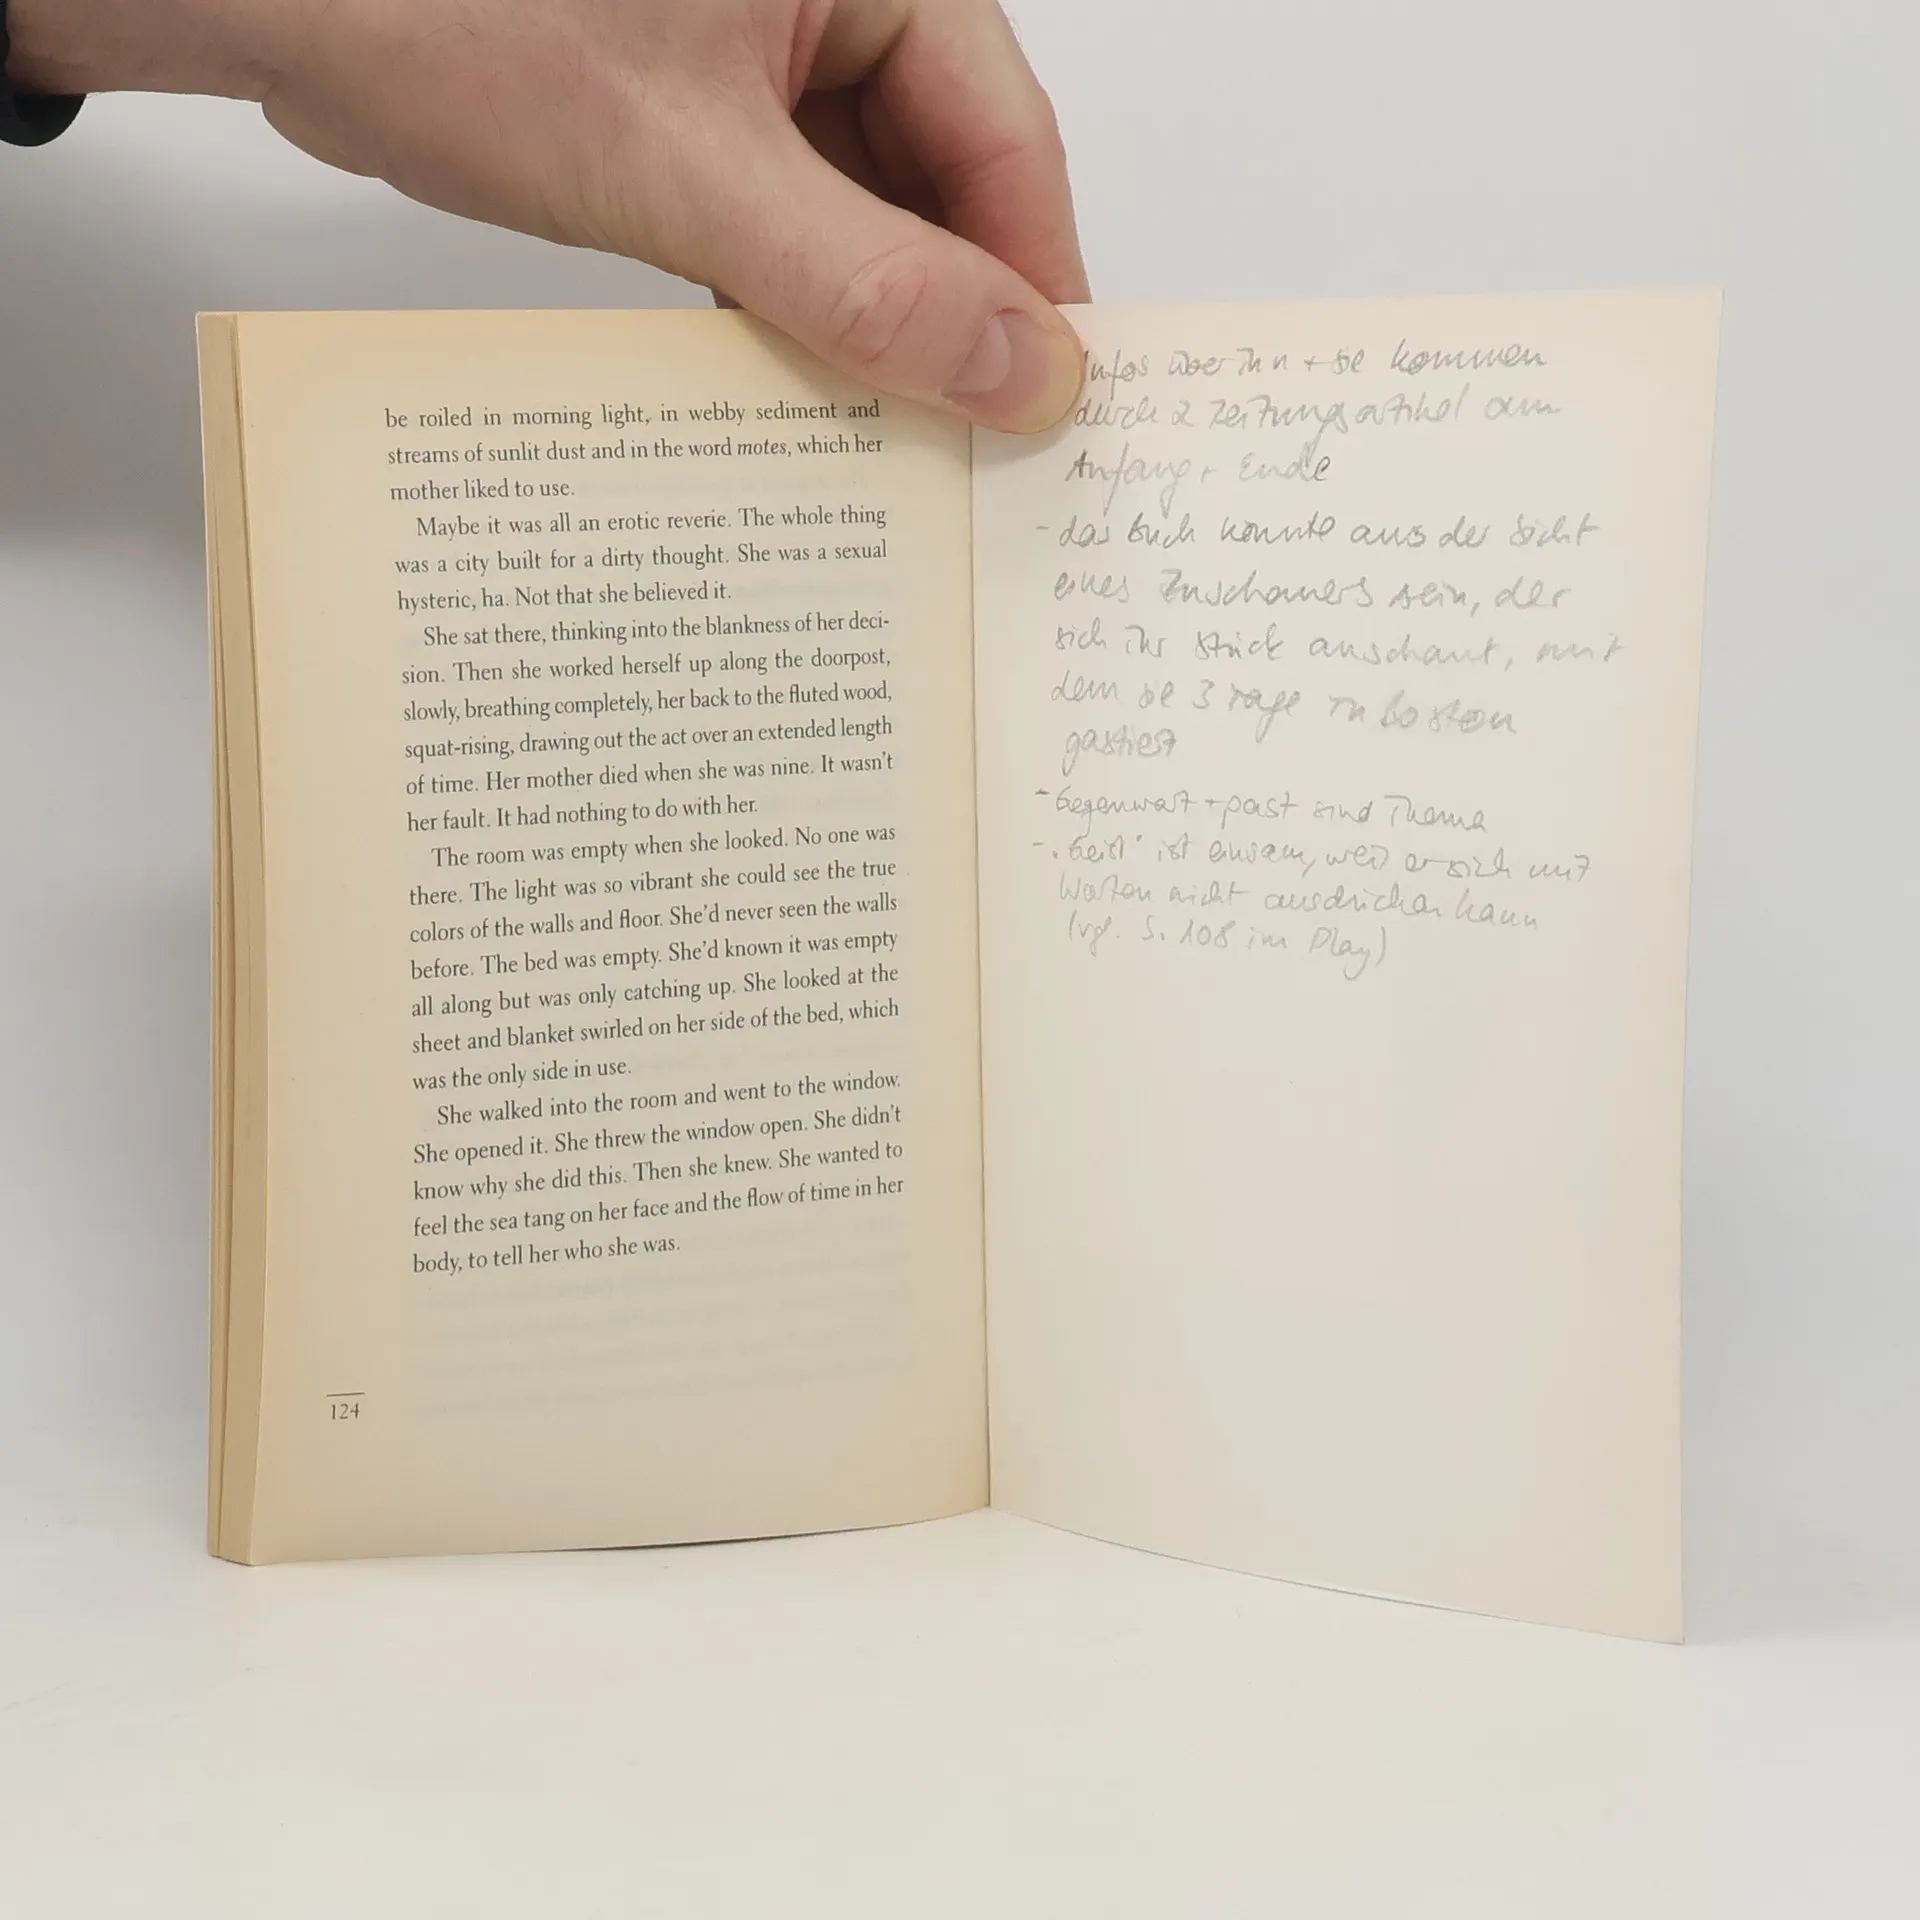 be roiled in morning light, in webby sediment and
streams of sunlit dust and in the word motes, which her
mother liked to use.
Maybe it was all an erotic reverie. The whole thing
was a city built for a dirty thought. She was a sexual
hysteric, ha. Not that she believed it.
She sat there, thinking into the blankness of her deci-
sion. Then she worked herself up along the doorpost,
slowly, breathing completely, her back to the fluted wood,
squat-rising, drawing out the act over an extended length
of time. Her mother died when she was nine. It wasn't
her fault. It had nothing to do with her.
The room was empty when she looked. No one was
there. The light was so vibrant she could see the true
colors of the walls and floor. She'd never seen the walls
before. The bed was empty. She'd known it was empty
all along but was only catching up. She looked at the
sheet and blanket swirled on her side of the bed, which
was the only side in use.
She walked into the room and went to the window.
She opened it. She threw the window open. She didn't
know why she did this. Then she knew. She wanted to
feel the sea tang on her face and the flow of time in her
body, to tell her who she was.
124
Infos über ihn + sie kommen
durch 2 Zeitungsartikel am
Anfang + Ende
- das Buch könnte aus der Sicht
eines Zuschauers sein, der
sich ihr Stück anschaut, mit
dem sie 3 Tage in Boston
gastiert
- Gegenwart + past sind Thema
- „Geist" ist einsam, weil er sich mit
Worten nicht ausdrücken kann
(vgl. S. 108 im Play)